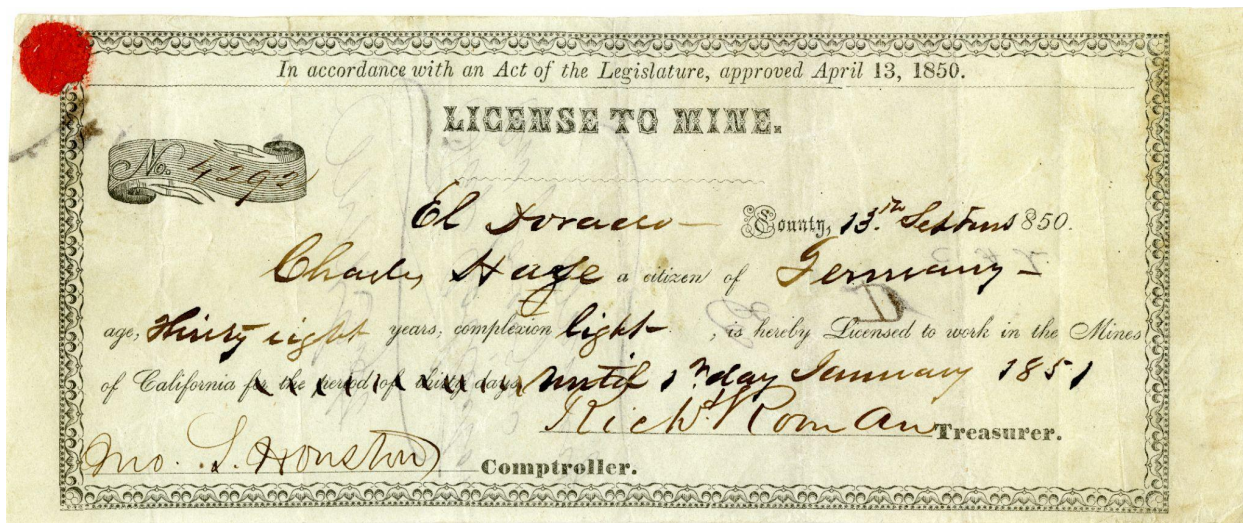 In accordance with an Act of the Legislature, approved April 13, 1850.
LICENSE TO MINE.
No. 4292
El Dorado County, 13th 1850.
Charles a citizen of Germany
age, thirty eight years, complexion light, is hereby Licensed to work in the Mines
of California for the period of thirty days, until 1st day January 1851
Richd. Roman Treasurer.
Jno. S. Houston Comptroller.